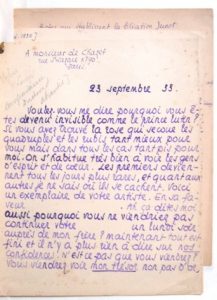 A monsieur de Chazot
Paris
23 septembre 33.
Voulez-vous me dire pourquoi vous ê-
tes devenu invisible comme le prince Lutin?
Si vous avez trouvé la rose qui secoue les
quadruples et les rubis tant mieux pour
vous mais dans tous les cas tant pis pour
moi. On s'habitue très bien à voir les gens
d'esprit et de cœur. Les premiers devien-
nent tous les jours plus rares, et quant aux
autres je ne sais où ils se cachent. Voici
un exemplaire de votre artiste. En a fa-
veur ni ça dites moi
aussi pourquoi vous ne viendriez pas
continuer votre un lundi soir
auprès de ma frère? maintenant tout est
fini et il n'y a plus rien à dire sur nos
confidences. N'est-ce pas que vous viendrez?
Vous viendrez voir mon trésor non pas d'or